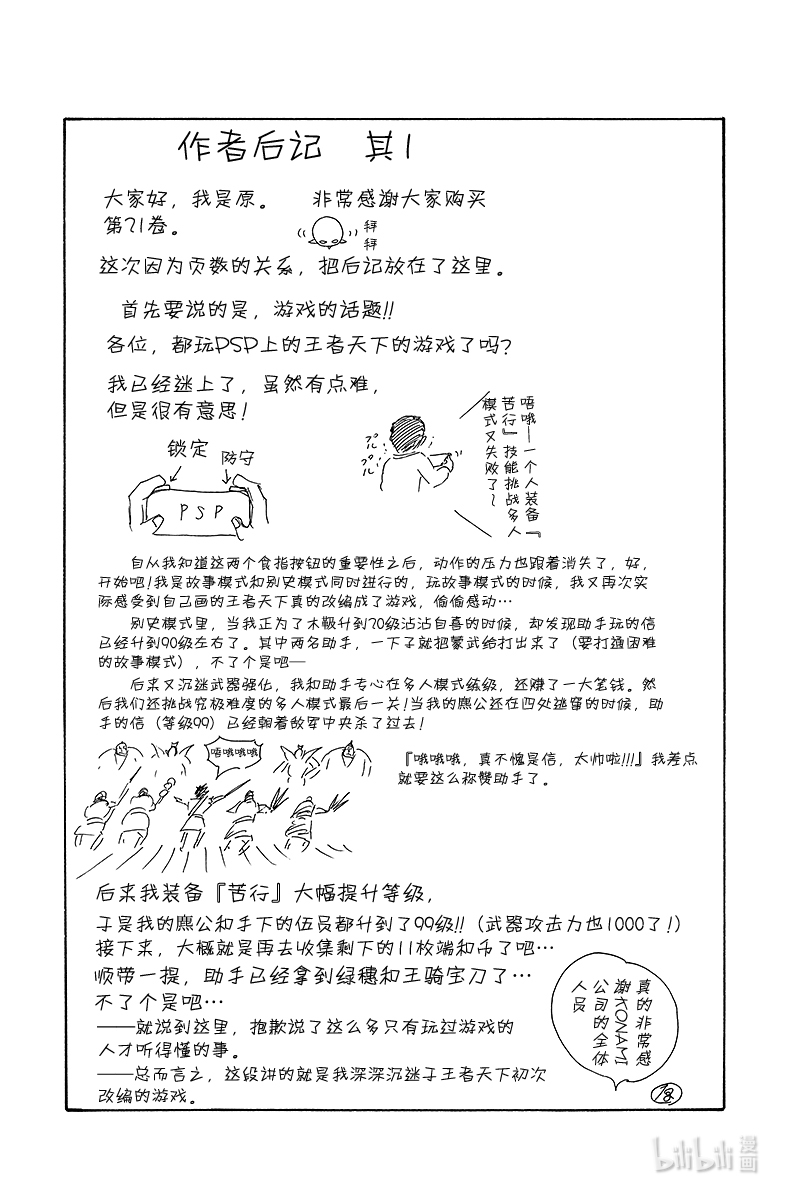 作者后记 其1
大家好，我是原。 非常感谢大家购买
第21卷。
拜
拜
这次因为页数的关系，把后记放在了这里。
首先要说的是，游戏的话题!!
各位，都玩PSP上的王者天下的游戏了吗?
我已经迷上了，虽然有点难，
但是很有意思!
唔哦—一个人装备『
苦行』技能挑战多人
模式又失败了~
プル
プル
锁定
防守
PSP
自从我知道这两个食指按钮的重要性之后，动作的压力也跟着消失了，好，
开始吧!我是故事模式和别史模式同时进行的，玩故事模式的时候，我又再次实
际感受到自己画的王者天下真的改编成了游戏，偷偷感动…
别史模式里，当我正为了木极升到70级沾沾自喜的时候，却发现助手玩的信
已经升到90级左右了。其中两名助手，一下子就把蒙武给打出来了（要打通困难
的故事模式），不了个是吧—
后来又沉迷武器强化，我和助手专心在多人模式练级，还赚了一大笔钱。然
后我们还挑战究极难度的多人模式最后一关!当我的麃公还在四处逃窜的时候，助
手的信（等级99）已经朝着敌军中央杀了过去!
唔哦哦哦
『哦哦哦，真不愧是信，太帅啦!!!』我差点
就要这么称赞助手了。
后来我装备『苦行』大幅提升等级，
于是我的麃公和手下的伍员都升到了99级!!（武器攻击力也1000了!）
接下来，大概就是再去收集剩下的11枚端和币了吧…
顺带一提，助手已经拿到绿穗和王骑宝刀了…
不了个是吧…
——就说到这里，抱歉说了这么多只有玩过游戏的
人才听得懂的事。
——总而言之，这段讲的就是我深深沉迷于王者天下初次
改编的游戏。
真的非常感
谢KONAMI
公司的全体
人员
bilibili漫画